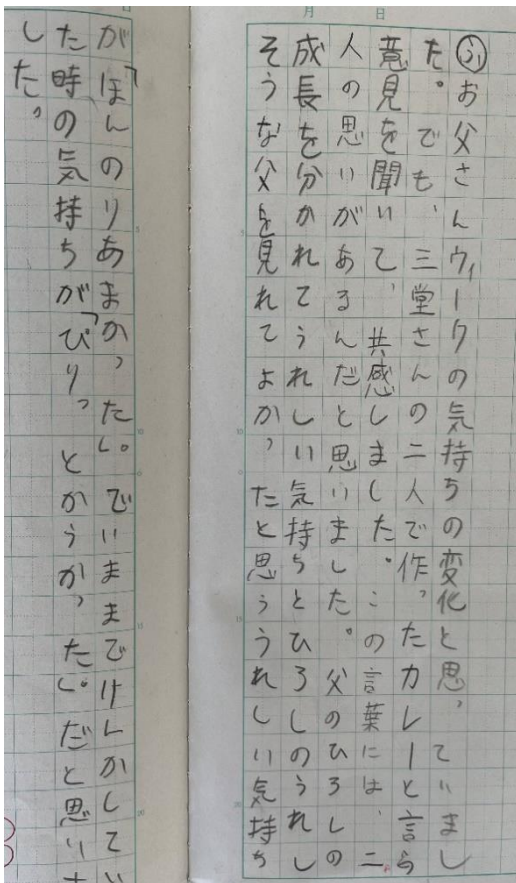 月　日
㋫お父さんウィークの気持ちの変化と思っていまし
た。でも、三堂さんの二人で作ったカレーと言う
意見を聞いて、共感しました。この言葉には、二
人の思いがあるんだと思いました。父のひろしの
成長を分かれてうれしい気持ちとひろしのうれし
そうな父を見れてよかったと思ううれしい気持ち
が「ほんのりあまかった」。でいままでけんかしてい
た時の気持ちが「ぴりっとかうかった」。だと思いま
した。